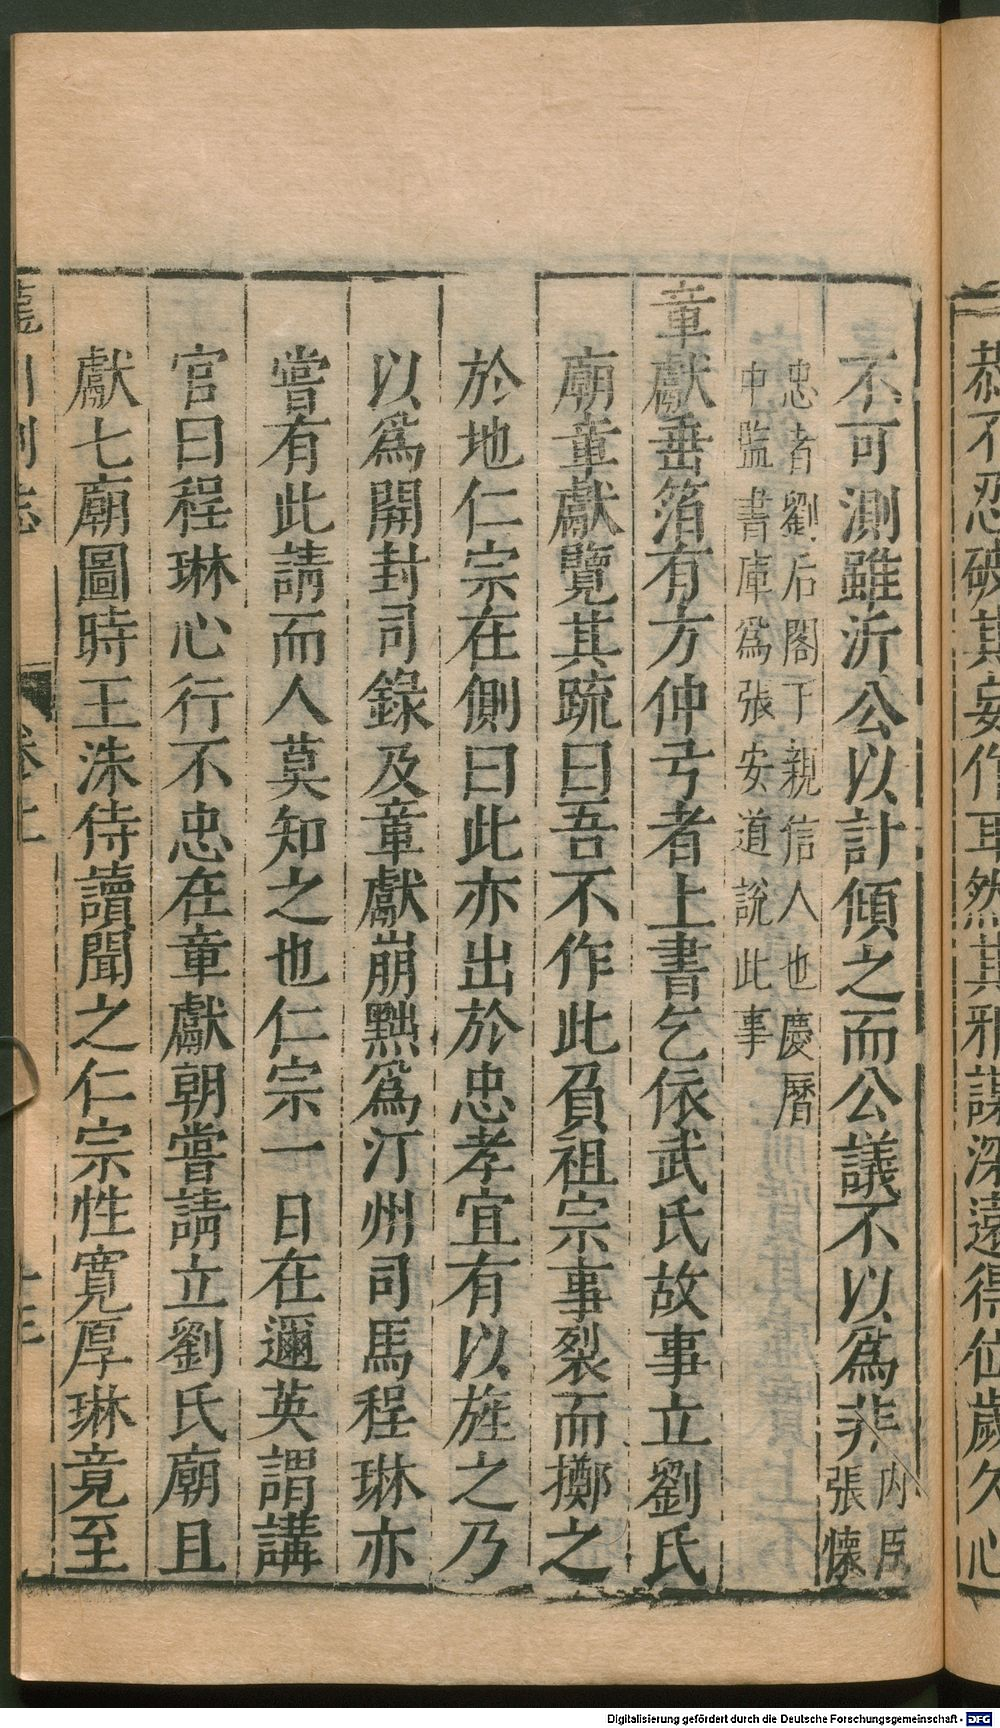 恭不忍破其妄作耳然其邪謀深遠得位歲久心
不可測雖沂公以計傾之而公議不以爲非內臣張懷
忠者劉后閤于親信人也慶曆
中監書庫爲張安道說此事
章獻垂箔有方仲弓者上書乞依武氏故事立劉氏
廟章獻覽其疏曰吾不作此負祖宗事裂而擲之
於地仁宗在側曰此亦出於忠孝宜有以旌之乃
以爲開封司錄及章獻崩黜爲汀州司馬程琳亦
嘗有此請而人莫知之也仁宗一日在邇英謂講
官曰程琳心行不忠在章獻朝嘗請立劉氏廟且
獻七廟圖時王洙侍讀聞之仁宗性寬厚琳竟至
龍川別志
卷上
十三
Digitalisierung gefördert durch die Deutsche Forschungsgemeinschaft - DFG